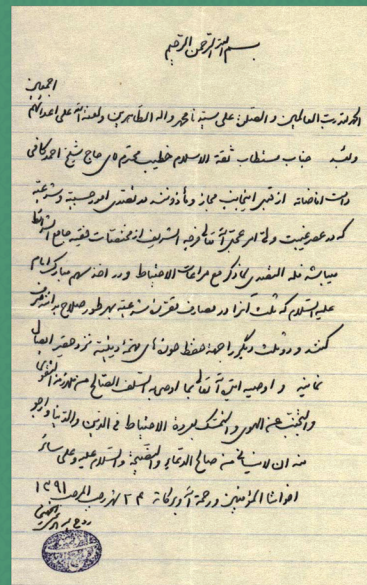 بسم الله الرحمن الرحیم
الحمد لله رب العالمین و الصلوة علی سیدنا محمد و اله الطاهرین و لعنة الله علی اعدائهم اجمعین
و بعد جناب مستطاب ثقة الاسلام خطیب محترم آقای حاج شیخ احمد کافی
دامت افاضاته از قبل اینجانب مجاز و مأذونند در تصدی امور حسبیه و شرعیه
که در عصر غیبت ولی امر عجل الله تعالی فرجه الشریف از مختصات فقیه جامع الشرائط
میباشد فله التصدی لما ذکر مع مراعات الاحتیاط و در اخذ سهم مبارک امام
علیه السلام که ثلث آنرا در مصارف مقرره شرعیه بهر طور صلاح دانند صرف
کنند و دو ثلث دیگر را جهة حفظ حوزه های مهمه دینیه نزد حقیر ایصال
نمایند و اوصیه ایده الله تعالی بما اوصی به السلف الصالح من ملازمة التقوی
و التجنب عن الهوی و التمسک بعروة الاحتیاط فی الدین و الدنیا و ارجو
منه ان لا ینسانی من صالح الدعاء و النصیحة و السلام علیه و علی سائر
اخواننا المؤمنین و رحمة الله و برکاته ۲۴ شهر رجب المرجب ۱۳۹۱
روح الله الموسوی الخمینی